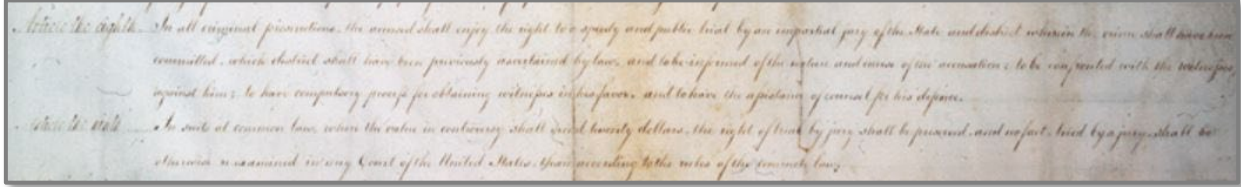 Article the eighth.. In all criminal prosecutions, the accused shall enjoy the right to a speedy and public trial by an impartial jury of the State and district wherein the crime shall have been
committed, which district shall have been previously ascertained by law, and to be informed of the nature and cause of the accusation; to be confronted with the witnesses
against him; to have compulsory process for obtaining witnesses in his favor, and to have the assistance of counsel for his defence.
Article the ninth.. In suits at common law, where the value in controversy shall exceed twenty dollars, the right of trial by jury shall be preserved, and no fact, tried by a jury, shall be
otherwise re-examined in any Court of the United States, than according to the rules of the common law.